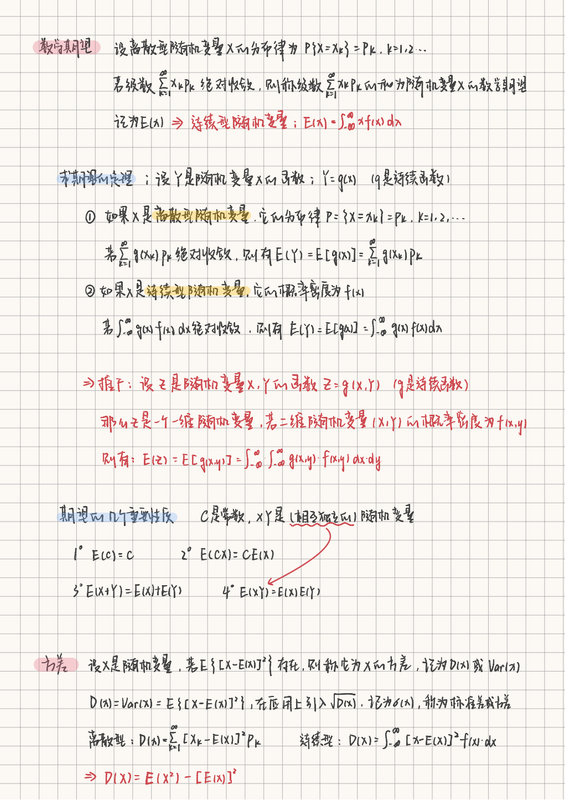 数学期望 设离散型随机变量X的分布律为 P{X=xk}=Pk, k=1,2…
若级数∑(k=1→∞) xkPk 绝对收敛, 则称级数∑(k=1→∞) xkPk 的和为随机变量X的数学期望
记为E(X) ⇒ 连续型随机变量: E(X)=∫(-∞→∞) xf(x)dx
求期望的定理 ; 设Y是随机变量X的函数; Y=g(X) (g是连续函数)
① 如果X是离散型随机变量, 它的分布律P={X=xk}=Pk, k=1,2,…
若∑(k=1→∞) g(xk)Pk 绝对收敛, 则有E(Y)=E[g(x)]=∑(k=1→∞) g(xk)Pk
② 如果X是连续型随机变量, 它的概率密度为f(x)
若∫(-∞→∞) g(x)f(x)dx绝对收敛, 则有 E(Y)=E[g(x)]=∫(-∞→∞) g(x)f(x)dx
⇒推广: 设Z是随机变量X,Y的函数Z=g(X,Y) (g是连续函数)
那么Z是一个一维随机变量, 若二维随机变量(X,Y)的概率密度为f(x,y)
则有: E(Z)=E[g(x,y)]=∫(-∞→∞)∫(-∞→∞) g(x,y)·f(x,y)dx·dy
期望的几个重要性质 C是常数, XY是(相互独立的)随机变量
1° E(C)=C 2° E(CX)=CE(X)
3° E(X+Y)=E(X)+E(Y) 4° E(XY)=E(X)E(Y)
方差 设X是随机变量, 若E{[X-E(X)]²}存在, 则称它为X的方差, 记为D(X)或Var(X)
D(X)=Var(X)=E{[X-E(X)]²}, 在应用上引入√D(X), 记为σ(X), 称为标准差或方差
离散型: D(X)=∑(k=1→∞)[Xk-E(X)]²Pk 连续型: D(X)=∫(-∞→∞)[X-E(X)]²f(x)·dx
⇒ D(X)=E(X²)-[E(X)]²